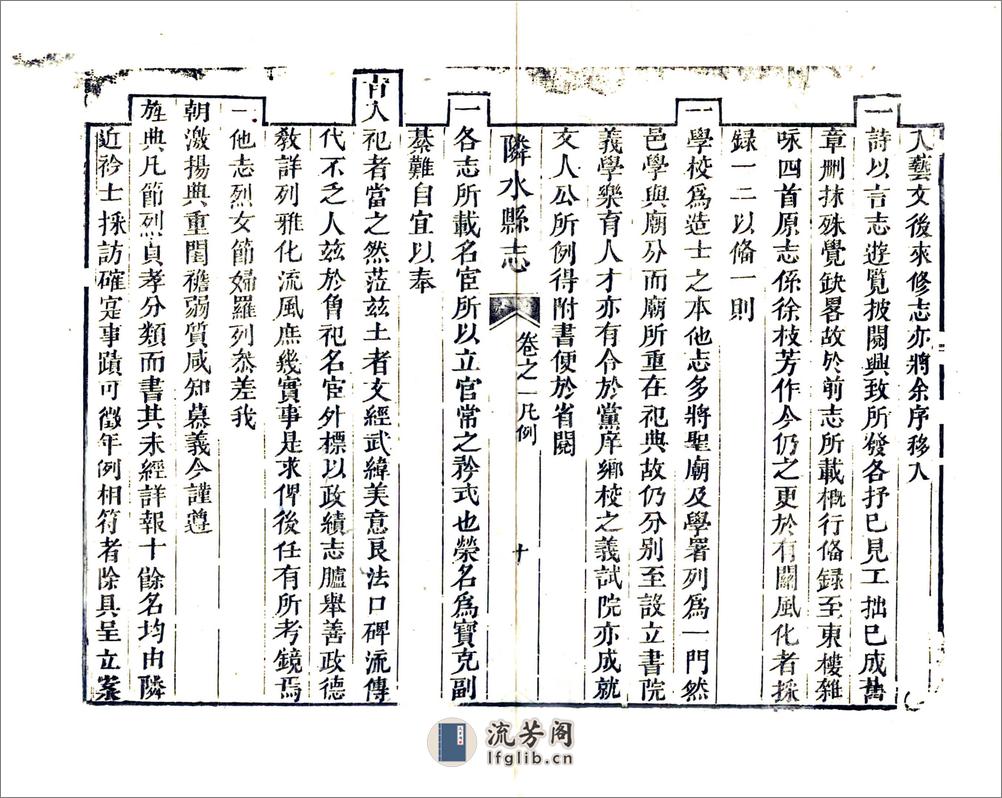 入藝文後來修志亦將余序移入
一詩以言志遊覽披閱興致所發各抒已見工拙已成舊
章刪抹殊覺缺畧故於前志所載槪行俻録至東樓雜
咏四首原志係徐枝芳作今仍之更於有關風化者採
録一二以俻一則
一學校爲造士之本他志多將聖廟及學署列爲一門然
邑學與廟分而廟所重在祀典故仍分别至設立書院
義學樂育人才亦有合於黨庠鄉校之義試院亦成就
文人公所例得附書便於省閱
隣水縣志
卷之一凡例
十
一各志所載名宦所以立官常之矜式也榮名爲寶克副
綦難自宜以奉
古入祀者當之然蒞兹土者文經武緯美意良法口碑流傳
代不乏人兹於魯祀名宦外標以政績志臚舉善政德
敎詳列雅化流風庶幾實事是求俾後任有所考鏡焉
一他志烈女節婦羅列叅差我
朝激揚典重閨襜弱質咸知慕義今謹遵
旌典凡節烈貞孝分類而書其未經詳報十餘名均由隣
近衿士採訪確寔事蹟可徵年例相符者除具呈立案
流芳阁
lfglib.cn